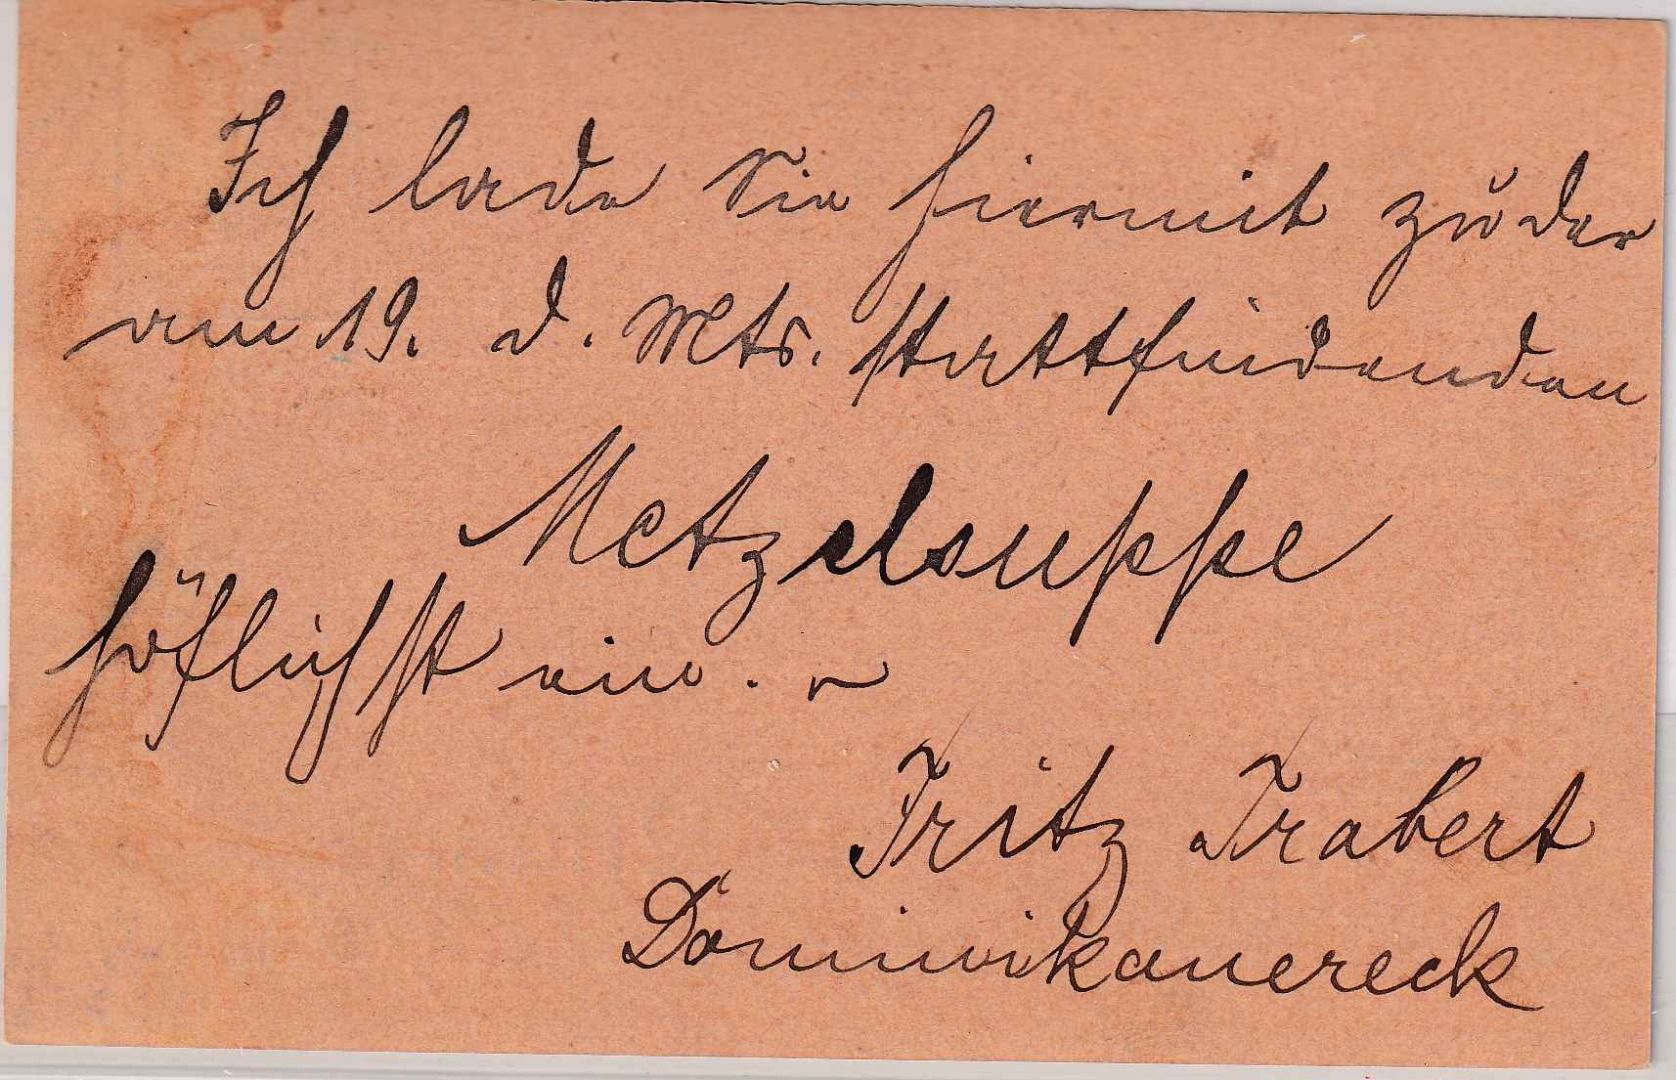 Ich lade Sie hiermit zu der
am 19. d. Mts. stattfindenden
Metzelsuppe
höflichst ein.
Fritz Trabert
Dominikanereck